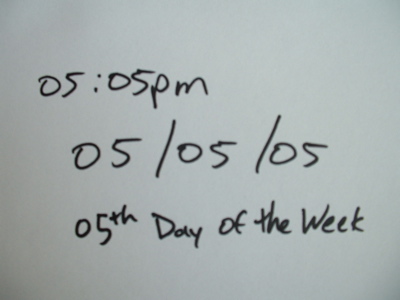 05:05pm
05/05/05
05th Day of the Week